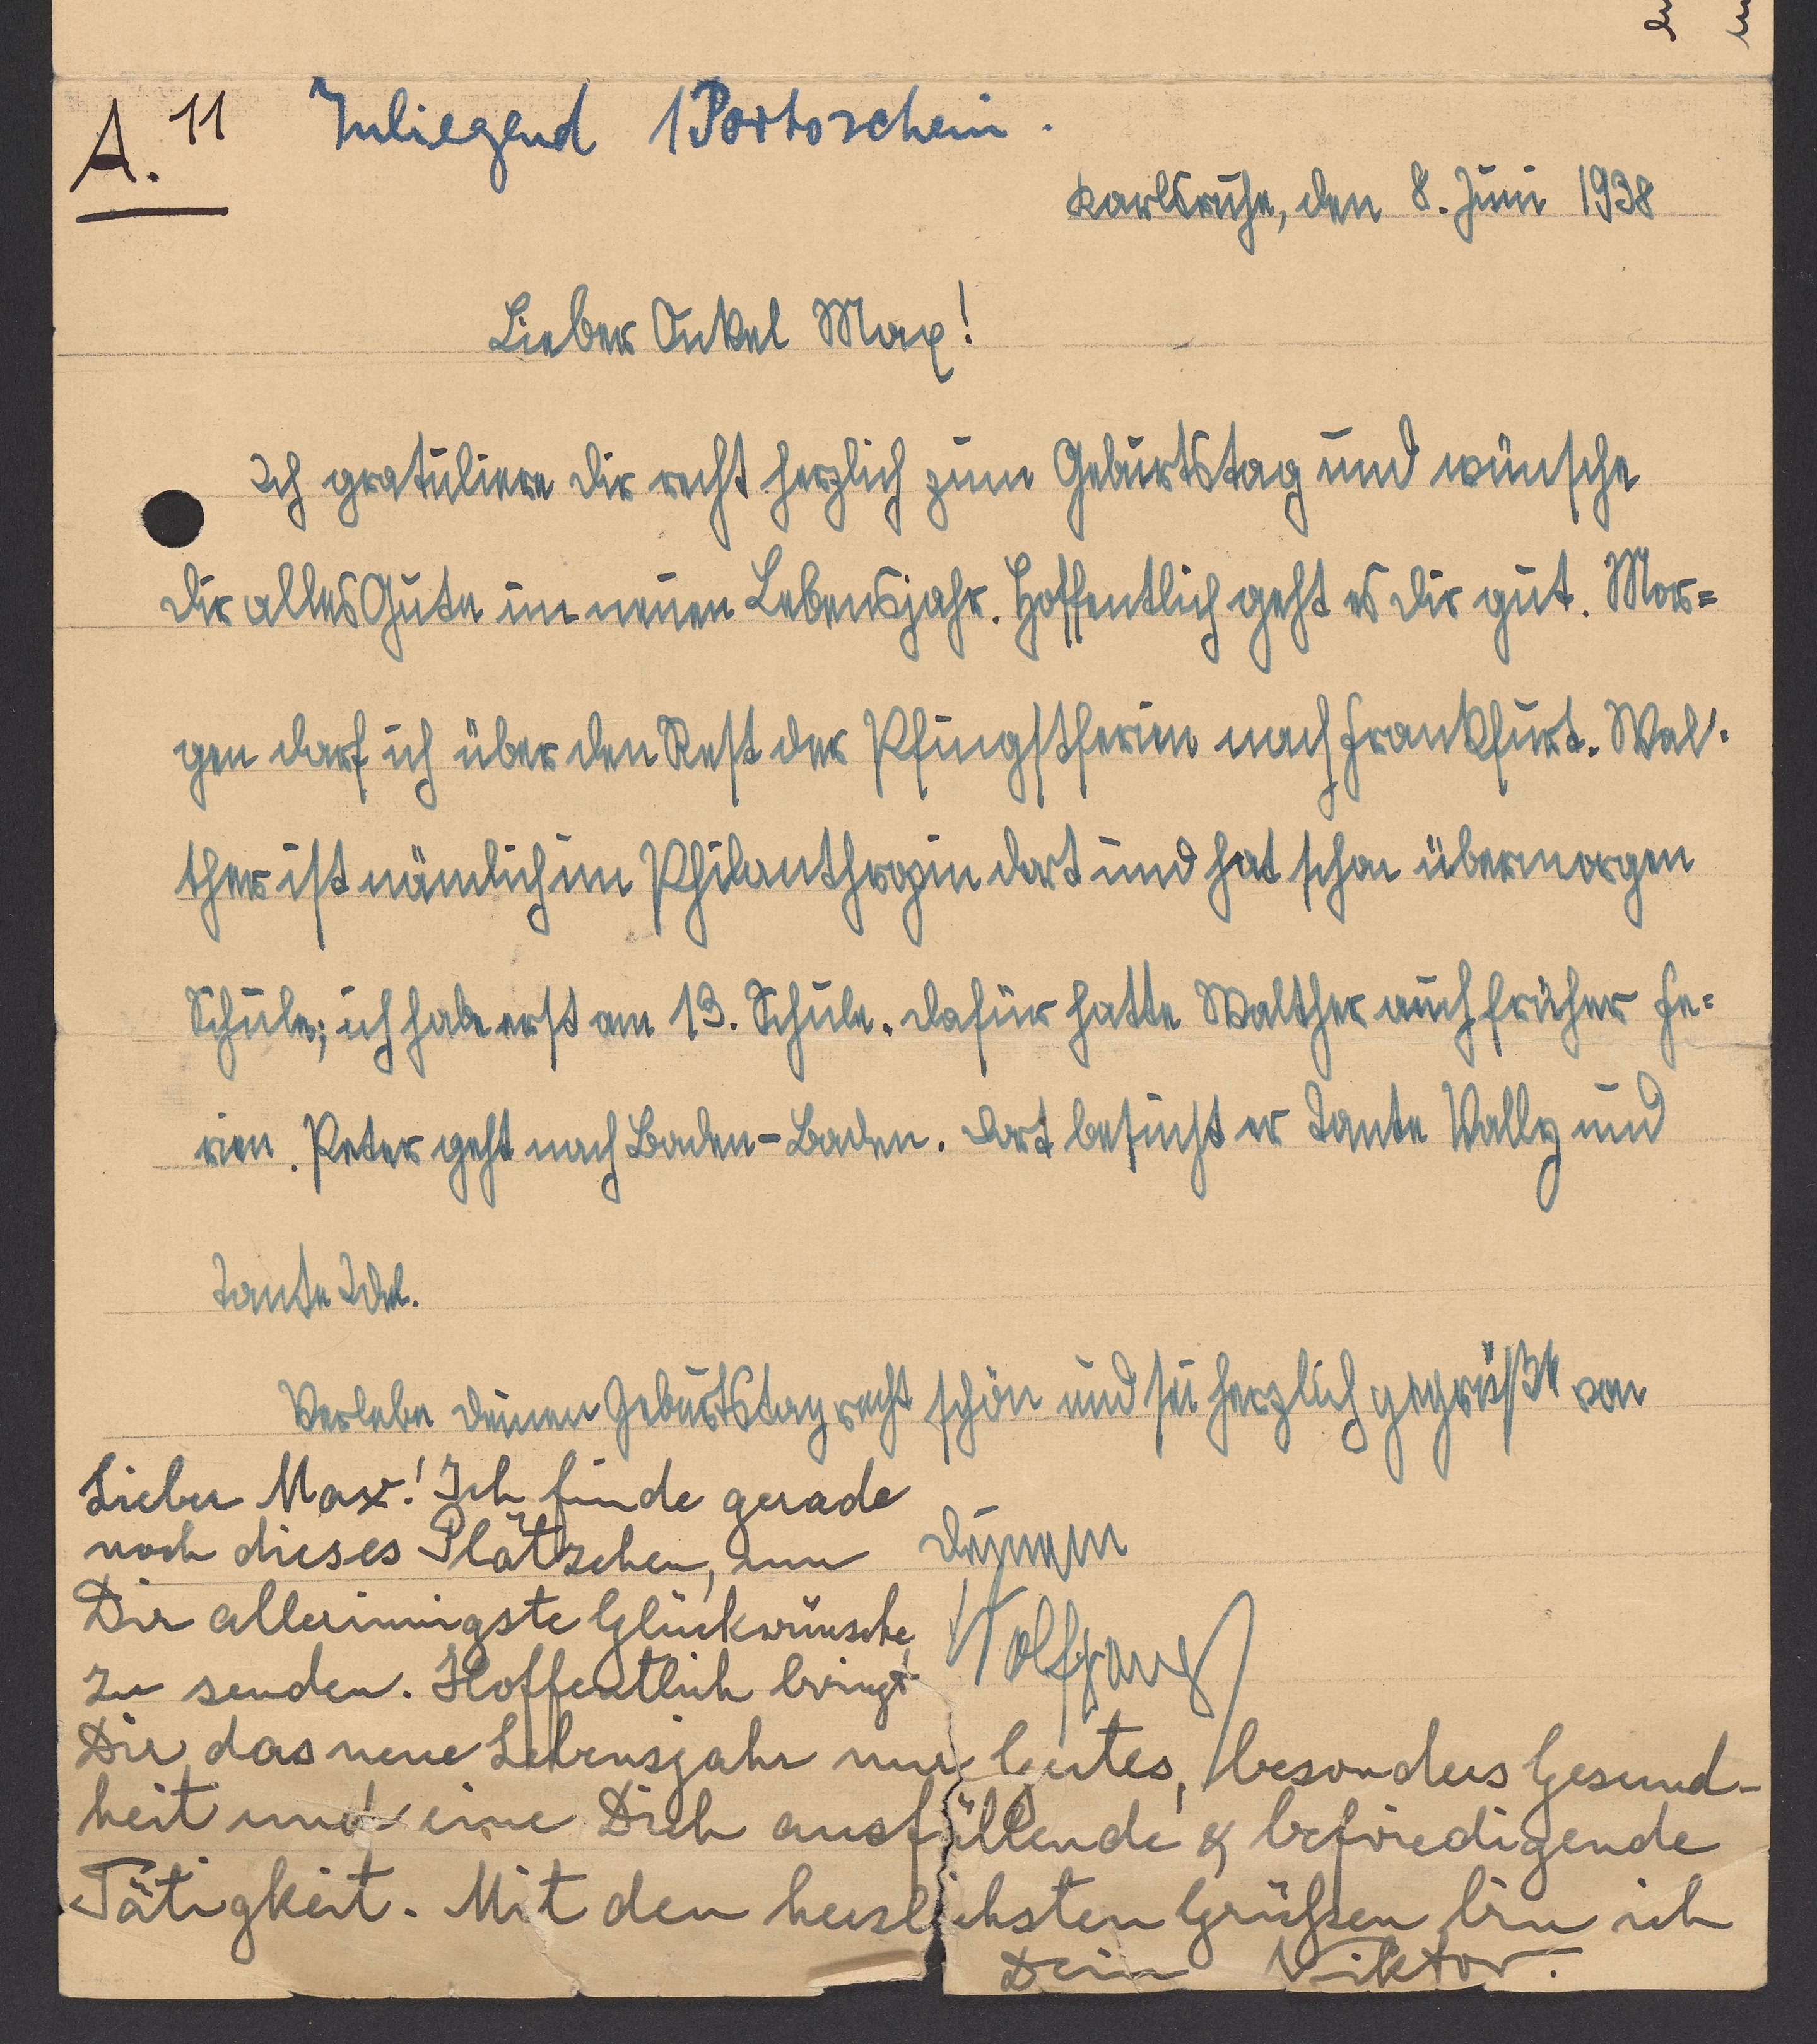 A. 11 Inliegend 1 Portoschein.
Karlsruhe, den 8. Juni 1938
Lieber Onkel Max!
Ich gratuliere dir recht herzlich zum Geburtstag und wünsche
dir alles Gute im neuen Lebensjahr. Hoffentlich geht es dir gut. Mor=
gen darf ich über den Rest der Pfingstferien nach Frankfurt. Wal=
ther ist nämlich im Philanthropin dort und hat schon übermorgen
Schule; ich habe erst am 13. Schule. Dafür hatte Walther auch früher Fe=
rien. Peter geht nach Baden-Baden. Dort besucht er Tante Wally und
Tante Idel.
Verlebe deinen Geburtstag recht schön und sei herzlich gegrüßt von
deinem
Wolfgang
Lieber Max! Ich finde gerade
noch dieses Plätzchen, um
Dir allerinnigste Glückwünsche
zu senden. Hoffentlich bringt
Dir das neue Lebensjahr nur Gutes, besonders Gesund-
heit und eine Dich ausfüllende & befriedigende
Tätigkeit. Mit den herzlichsten Grüßen bin ich
Dein Viktor.